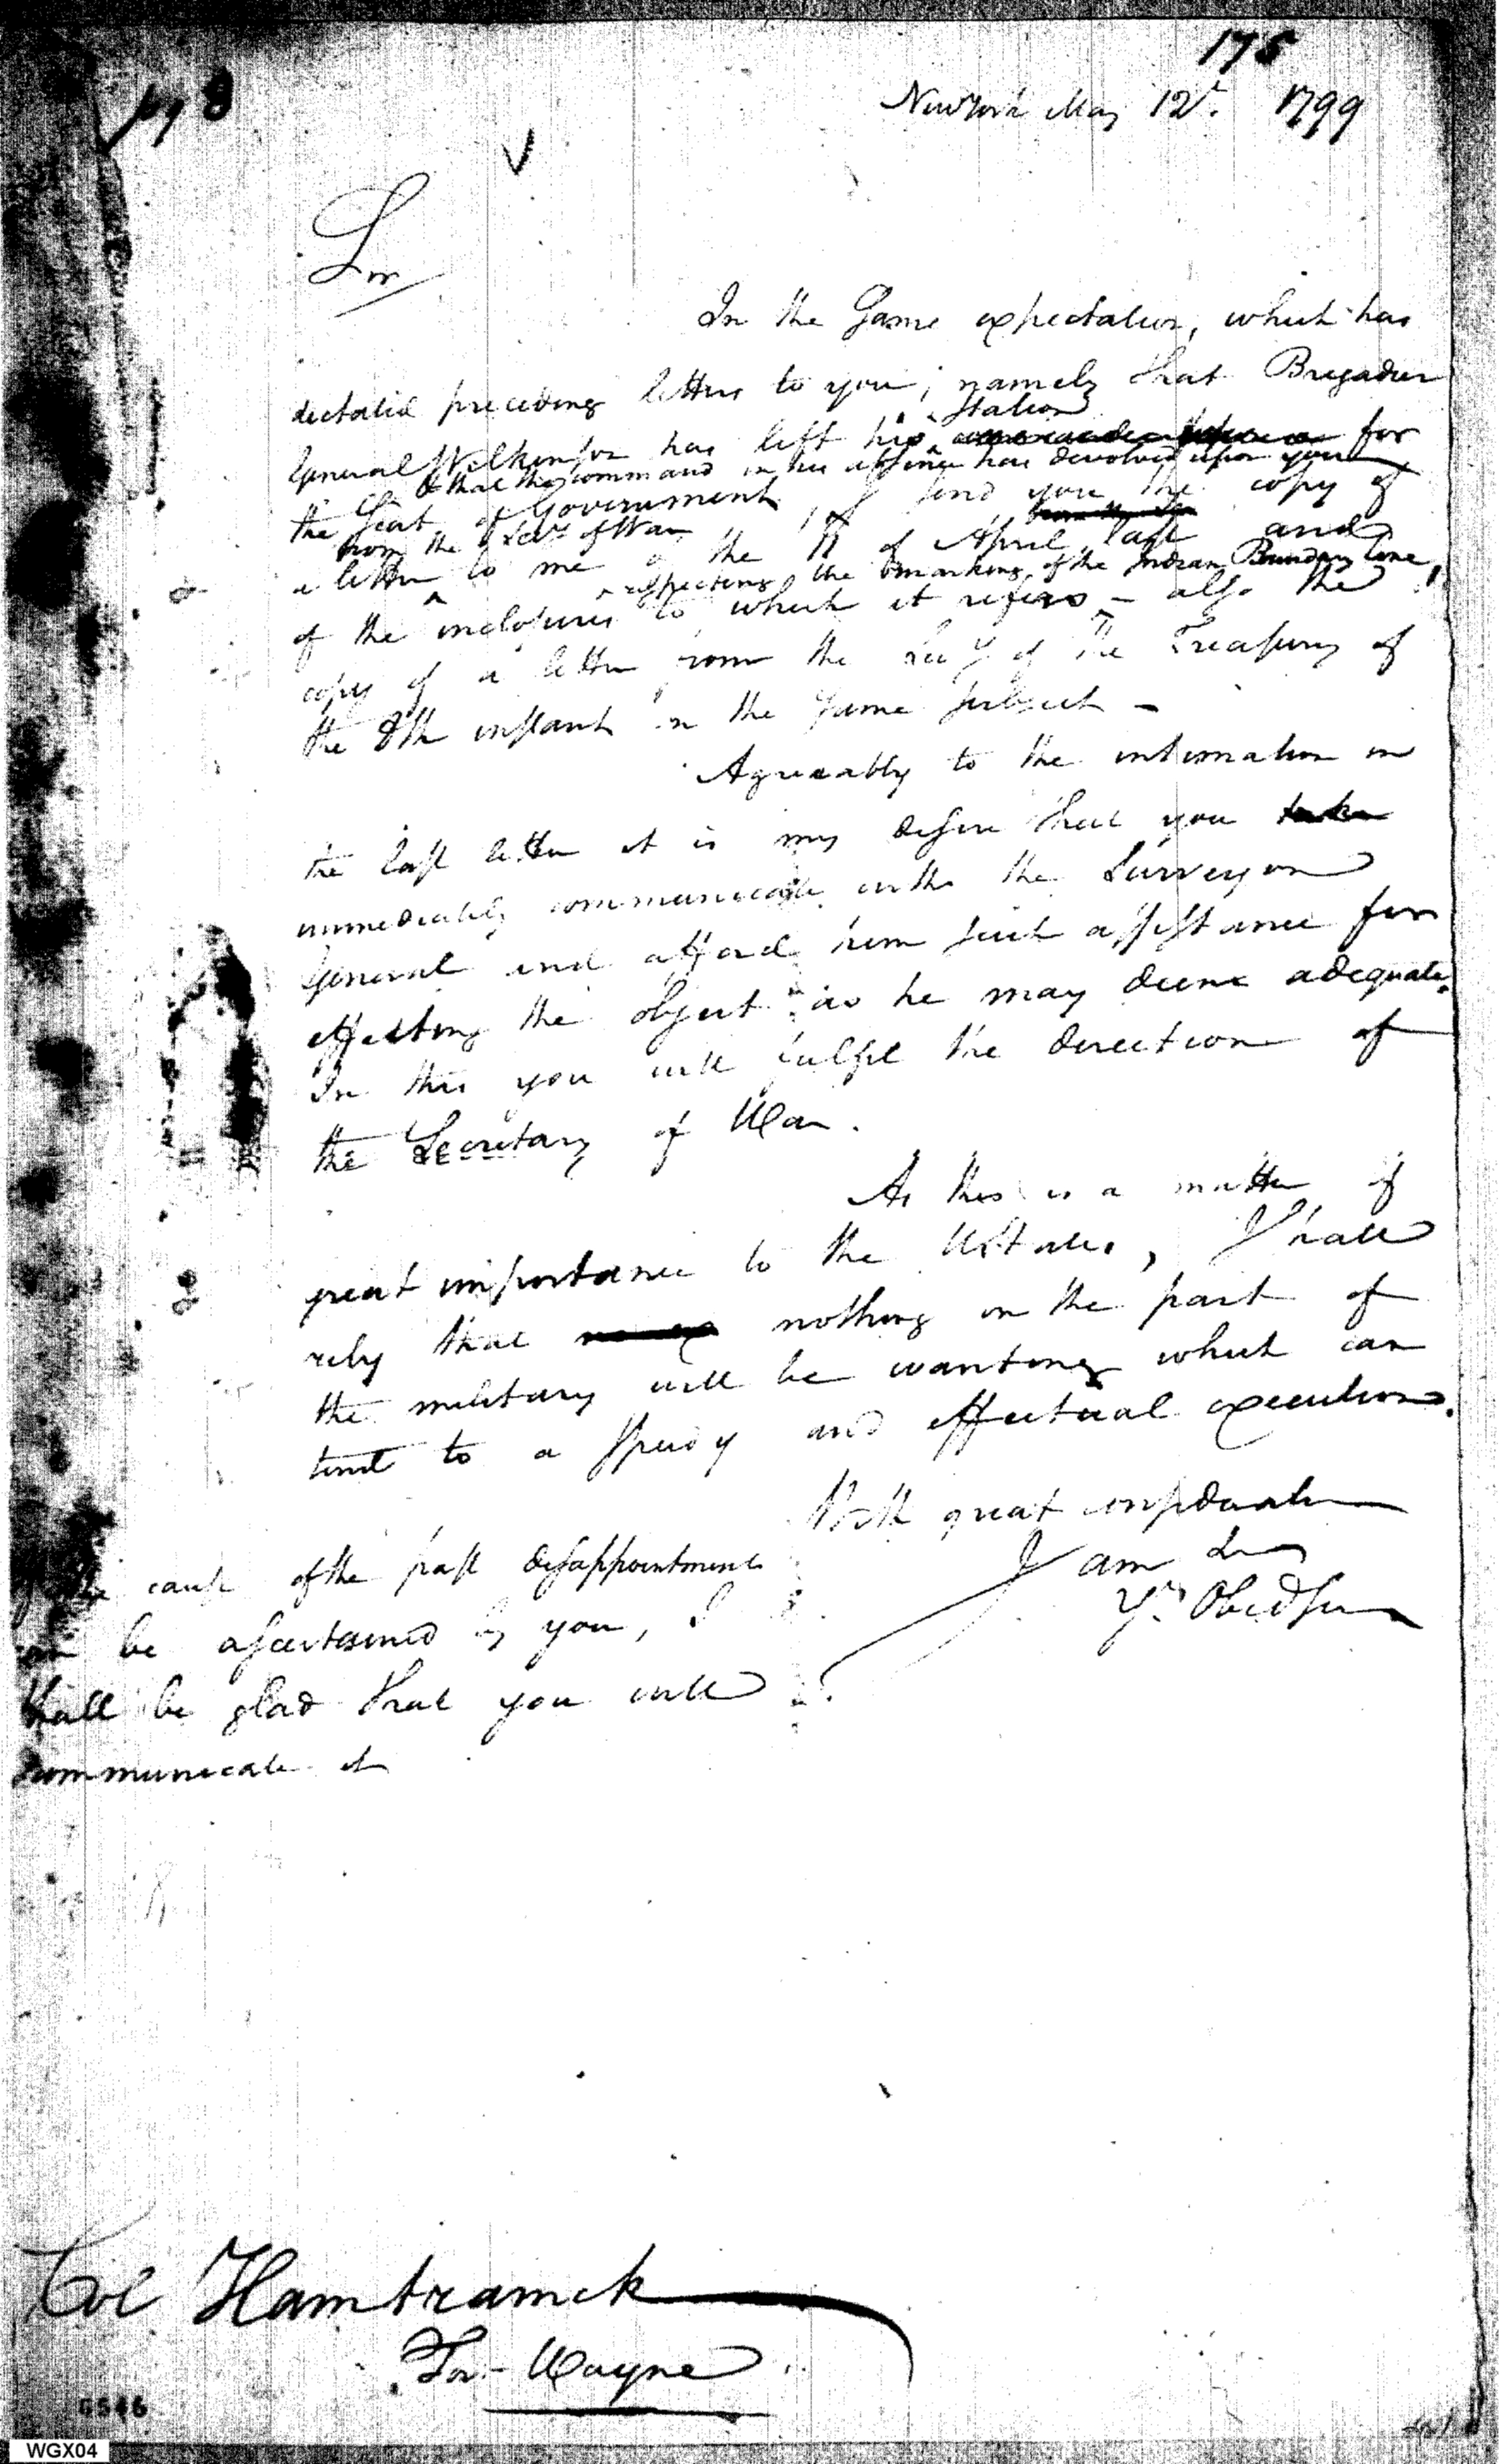 175
NewYork May 12th. 1799
Sir
In the same expectation, which has
dictated preceding letters to you; namely that Brigadier
Station
General Wilkinson has left his for
& that the command in his absence has devolved upon you
the Seat of Government, I send you the copy of
from the Secy of War
a letter to me of the of April last and
respecting the marking of the Indian Boundary line,
of the inclosures to which it refers – also the
copy of a letter from the Secy of the Treasury of
the 8th instant on the same subject –
Agreeably to the intimation in
the last letter it is my desire that you
immediately communicate with the Surveyor
General and afford him such assistance for
effecting the object as he may deem adequate.
In this you will fulfil the direction of
the Secretary of War.
As this is a matter of
great importance to the UStates, I shall
rely that nothing on the part of
the military will be wanting which can
tend to a speedy and effectual execution.
With great consideration
I am Sir
Yr. Obed Ser
the cause of the past disappointment
can be ascertained by you, I
shall be glad that you will
communicate it
Col Hamtramck
For- Wayne
6546
WGX04